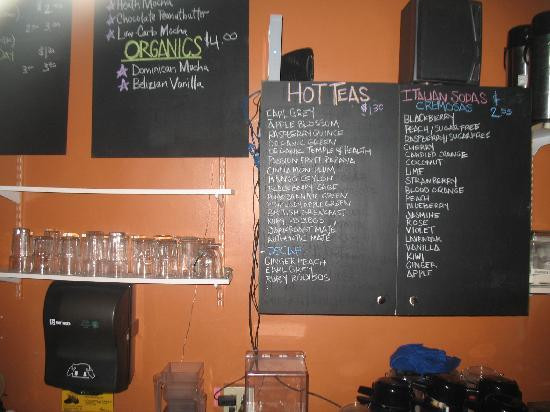 Heath Mocha
Chocolate Peanutbutter
Low Carb Mocha
ORGANICS $4.00
Dominican Mocha
Belizian Vanilla
HOT TEAS $1.30
EARL GREY
APPLE BLOSSOM
RASPBERRY QUINCE
ORGANIC GREEN
ORGANIC TEMPLE of HEALTH
PASSION FRUIT PAPAYA
CINNAMON PLUM
MANGO CEYLON
BLACKBERRY SAGE
POMEGRANATE GREEN
APPLE GREEN
BRITISH BREAKFAST
RUBY ROOIBOS
DARKROAST MATE
AUTHENTIC MATE
DECAF
GINGER PEACH
EARL GREY
RUBY ROOIBOS
ITALIAN SODAS $
CREMOSAS
BLACKBERRY
PEACH/SUGAR FREE
RASPBERRY/SUGARFREE
CHERRY
CANDIED ORANGE
COCONUT
LIME
STRAWBERRY
BLOOD ORANGE
PEACH
BLUEBERRY
JASMINE
ROSE
VIOLET
LAVENDAR
VANILLA
KIWI
GINGER
APPLE